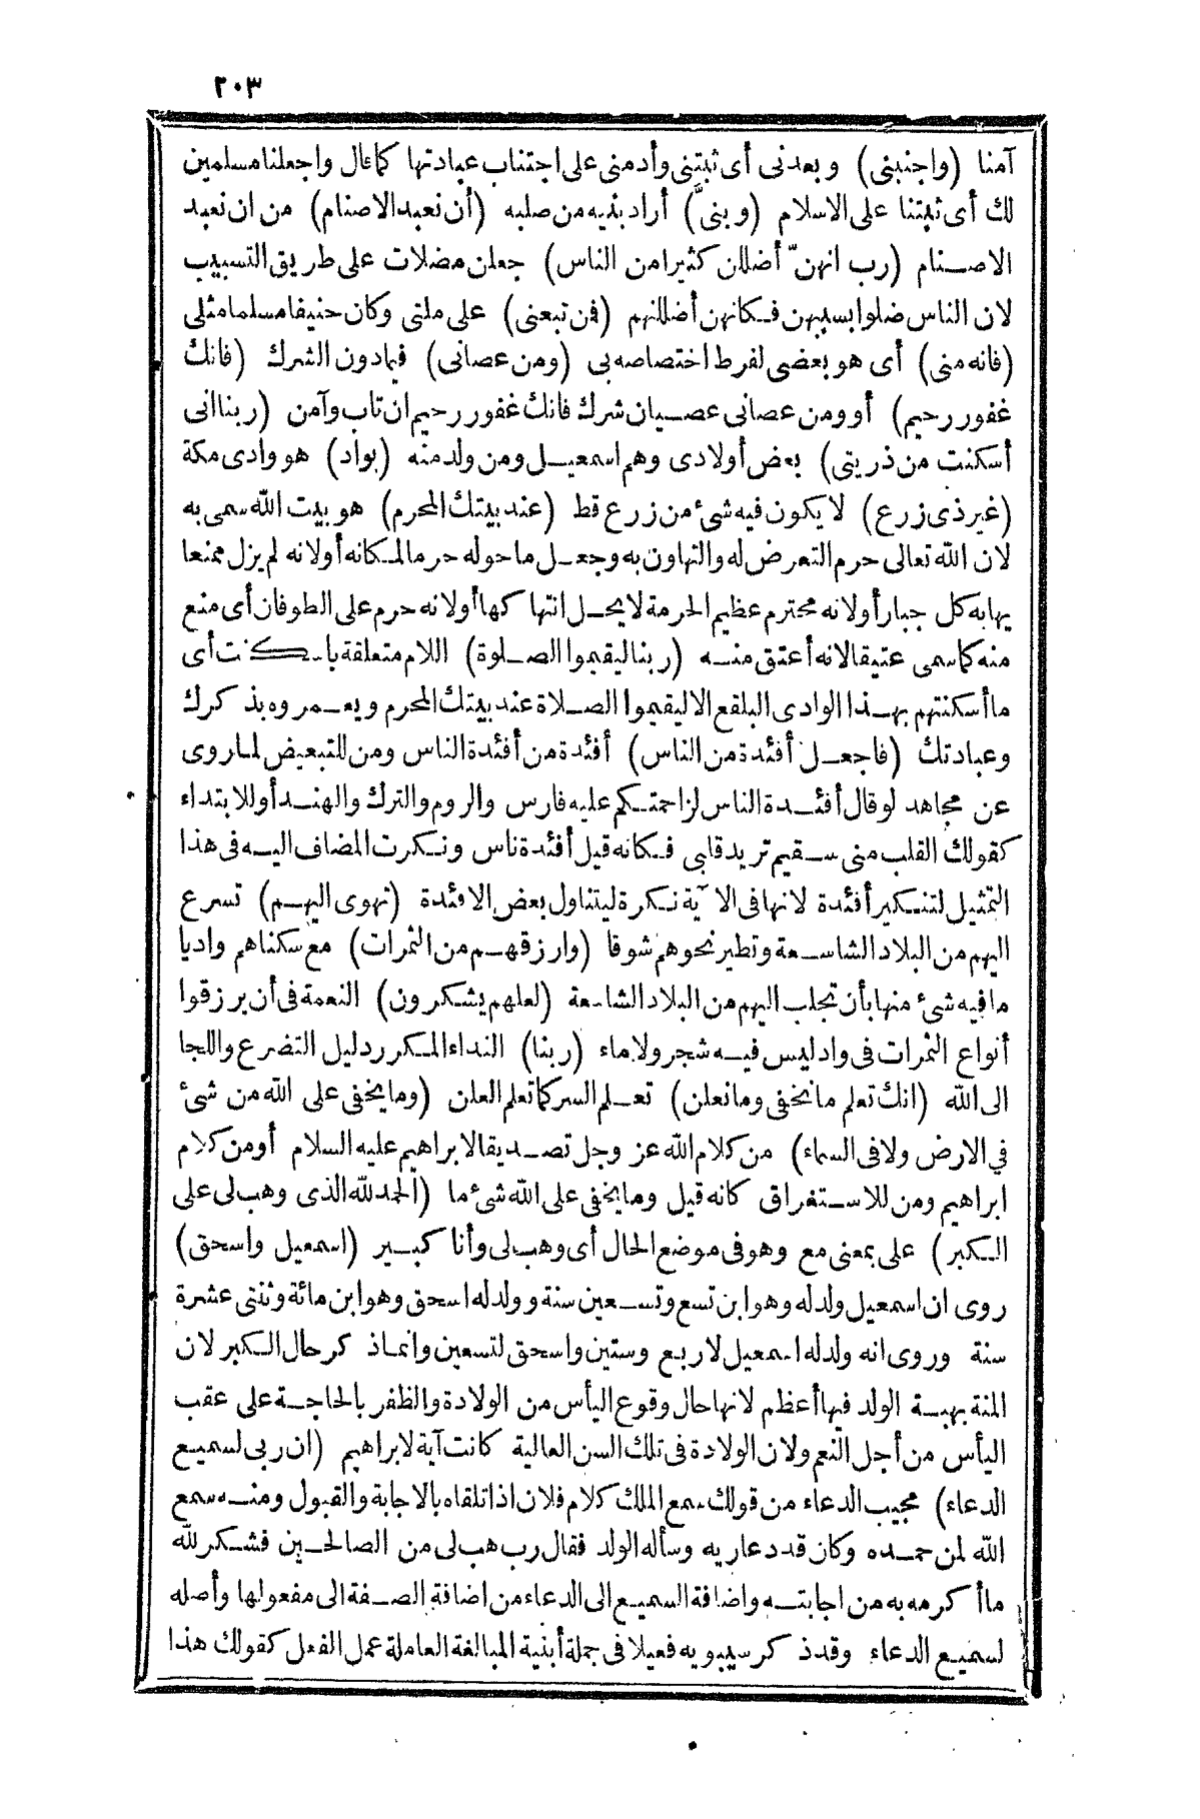 ٢٠٣
آمنا (واجنبنى) وبعدنى أى ثبتنى وأدمنى على اجتناب عبادتها كما قال واجعلنا مسلمين
لك أى ثبتنا على الاسلام (وبنىّ) أراد بنيه من صلبه (أن نعبد الاصنام) من ان نعبد
الاصنام (رب انهنّ أضللن كثيرا من الناس) جعلن مضلات على طريق التسبيب
لان الناس ضلوا بسببهن فكانهن أضللنهم (فمن تبعنى) على ملتى وكان حنيفا مسلما مثلى
(فانه منى) أى هو بعضى لفرط اختصاصه بى (ومن عصانى) فيما دون الشرك (فانك
غفور رحيم) أو ومن عصانى عصيان شرك فانك غفور رحيم ان تاب وآمن (ربنا انى
أسكنت من ذريتى) بعض أولادى وهم اسمعيل ومن ولد منه (بواد) هو وادى مكة
(غير ذى زرع) لا يكون فيه شئ من زرع قط (عند بيتك المحرم) هو بيت الله سمى به
لان الله تعالى حرم التعرض له والتهاون به وجعل ما حوله حرما لمكانه أولانه لم يزل ممنعا
يهابه كل جبار أولانه محترم عظيم الحرمة لا يحل انتهاكها أولانه حرم على الطوفان أى منع
منه كما سمى عتيقا لانه أعتق منه (ربنا ليقيموا الصلوة) اللام متعلقة باسكنت أى
ما أسكنتهم بهذا الوادى البلقع الا ليقيموا الصلاة عند بيتك المحرم ويعمروه بذكرك
وعبادتك (فاجعل أفئدة من الناس) أفئدة من أفئدة الناس ومن للتبعيض لما روى
عن مجاهد لو قال أفئدة الناس لزاحمتكم عليه فارس والروم والترك والهند أو للابتداء
كقولك القلب منى سقيم تريد قلبى فكانه قيل أفئدة ناس ونكرت المضاف اليه فى هذا
التمثيل لتنكير أفئدة لانها فى الآية نكرة ليتناول بعض الافئدة (تهوى اليهم) تسرع
اليهم من البلاد الشاسعة وتطير نحوهم شوقا (وارزقهم من الثمرات) مع سكناهم واديا
ما فيه شئ منها بأن تجلب اليهم من البلاد الشاسعة (لعلهم يشكرون) النعمة فى أن يرزقوا
أنواع الثمرات فى واد ليس فيه شجر ولا ماء (ربنا) النداء المكرر دليل التضرع واللجا
الى الله (انك تعلم ما نخفى وما نعلن) تعلم السر كما تعلم العلن (وما يخفى على الله من شئ
في الارض ولا فى السماء) من كلام الله عز وجل تصديقا لابراهيم عليه السلام أو من كلام
ابراهيم ومن للاستغراق كانه قيل وما يخفى على الله شئ ما (الحمد لله الذى وهب لى على
الكبر) على بمعنى مع وهو فى موضع الحال أى وهب لى وأنا كبير (اسمعيل واسحق)
روى ان اسمعيل ولد له وهو ابن تسع وتسعين سنة وولد له اسحق وهو ابن مائة وثنتى عشرة
سنة وروى انه ولد له اسمعيل لاربع وستين واسحق لتسعين وانما ذكر حال الكبر لان
المنة بهبة الولد فيها أعظم لانها حال وقوع اليأس من الولادة والظفر بالحاجة على عقب
اليأس من أجل النعم ولان الولادة فى تلك السن العالية كانت آية لابراهيم (ان ربى لسميع
الدعاء) مجيب الدعاء من قولك سمع الملك كلام فلان اذا تلقاه بالاجابة والقبول ومنه سمع
الله لمن حمده وكان قد دعا ربه وسأله الولد فقال رب هب لى من الصالحين فشكر لله
ما أكرمه به من اجابته واضافة السميع الى الدعاء من اضافة الصفة الى مفعولها وأصله
لسميع الدعاء وقد ذكر سيبويه فعيلا فى جملة أبنية المبالغة العاملة عمل الفعل كقولك هذا